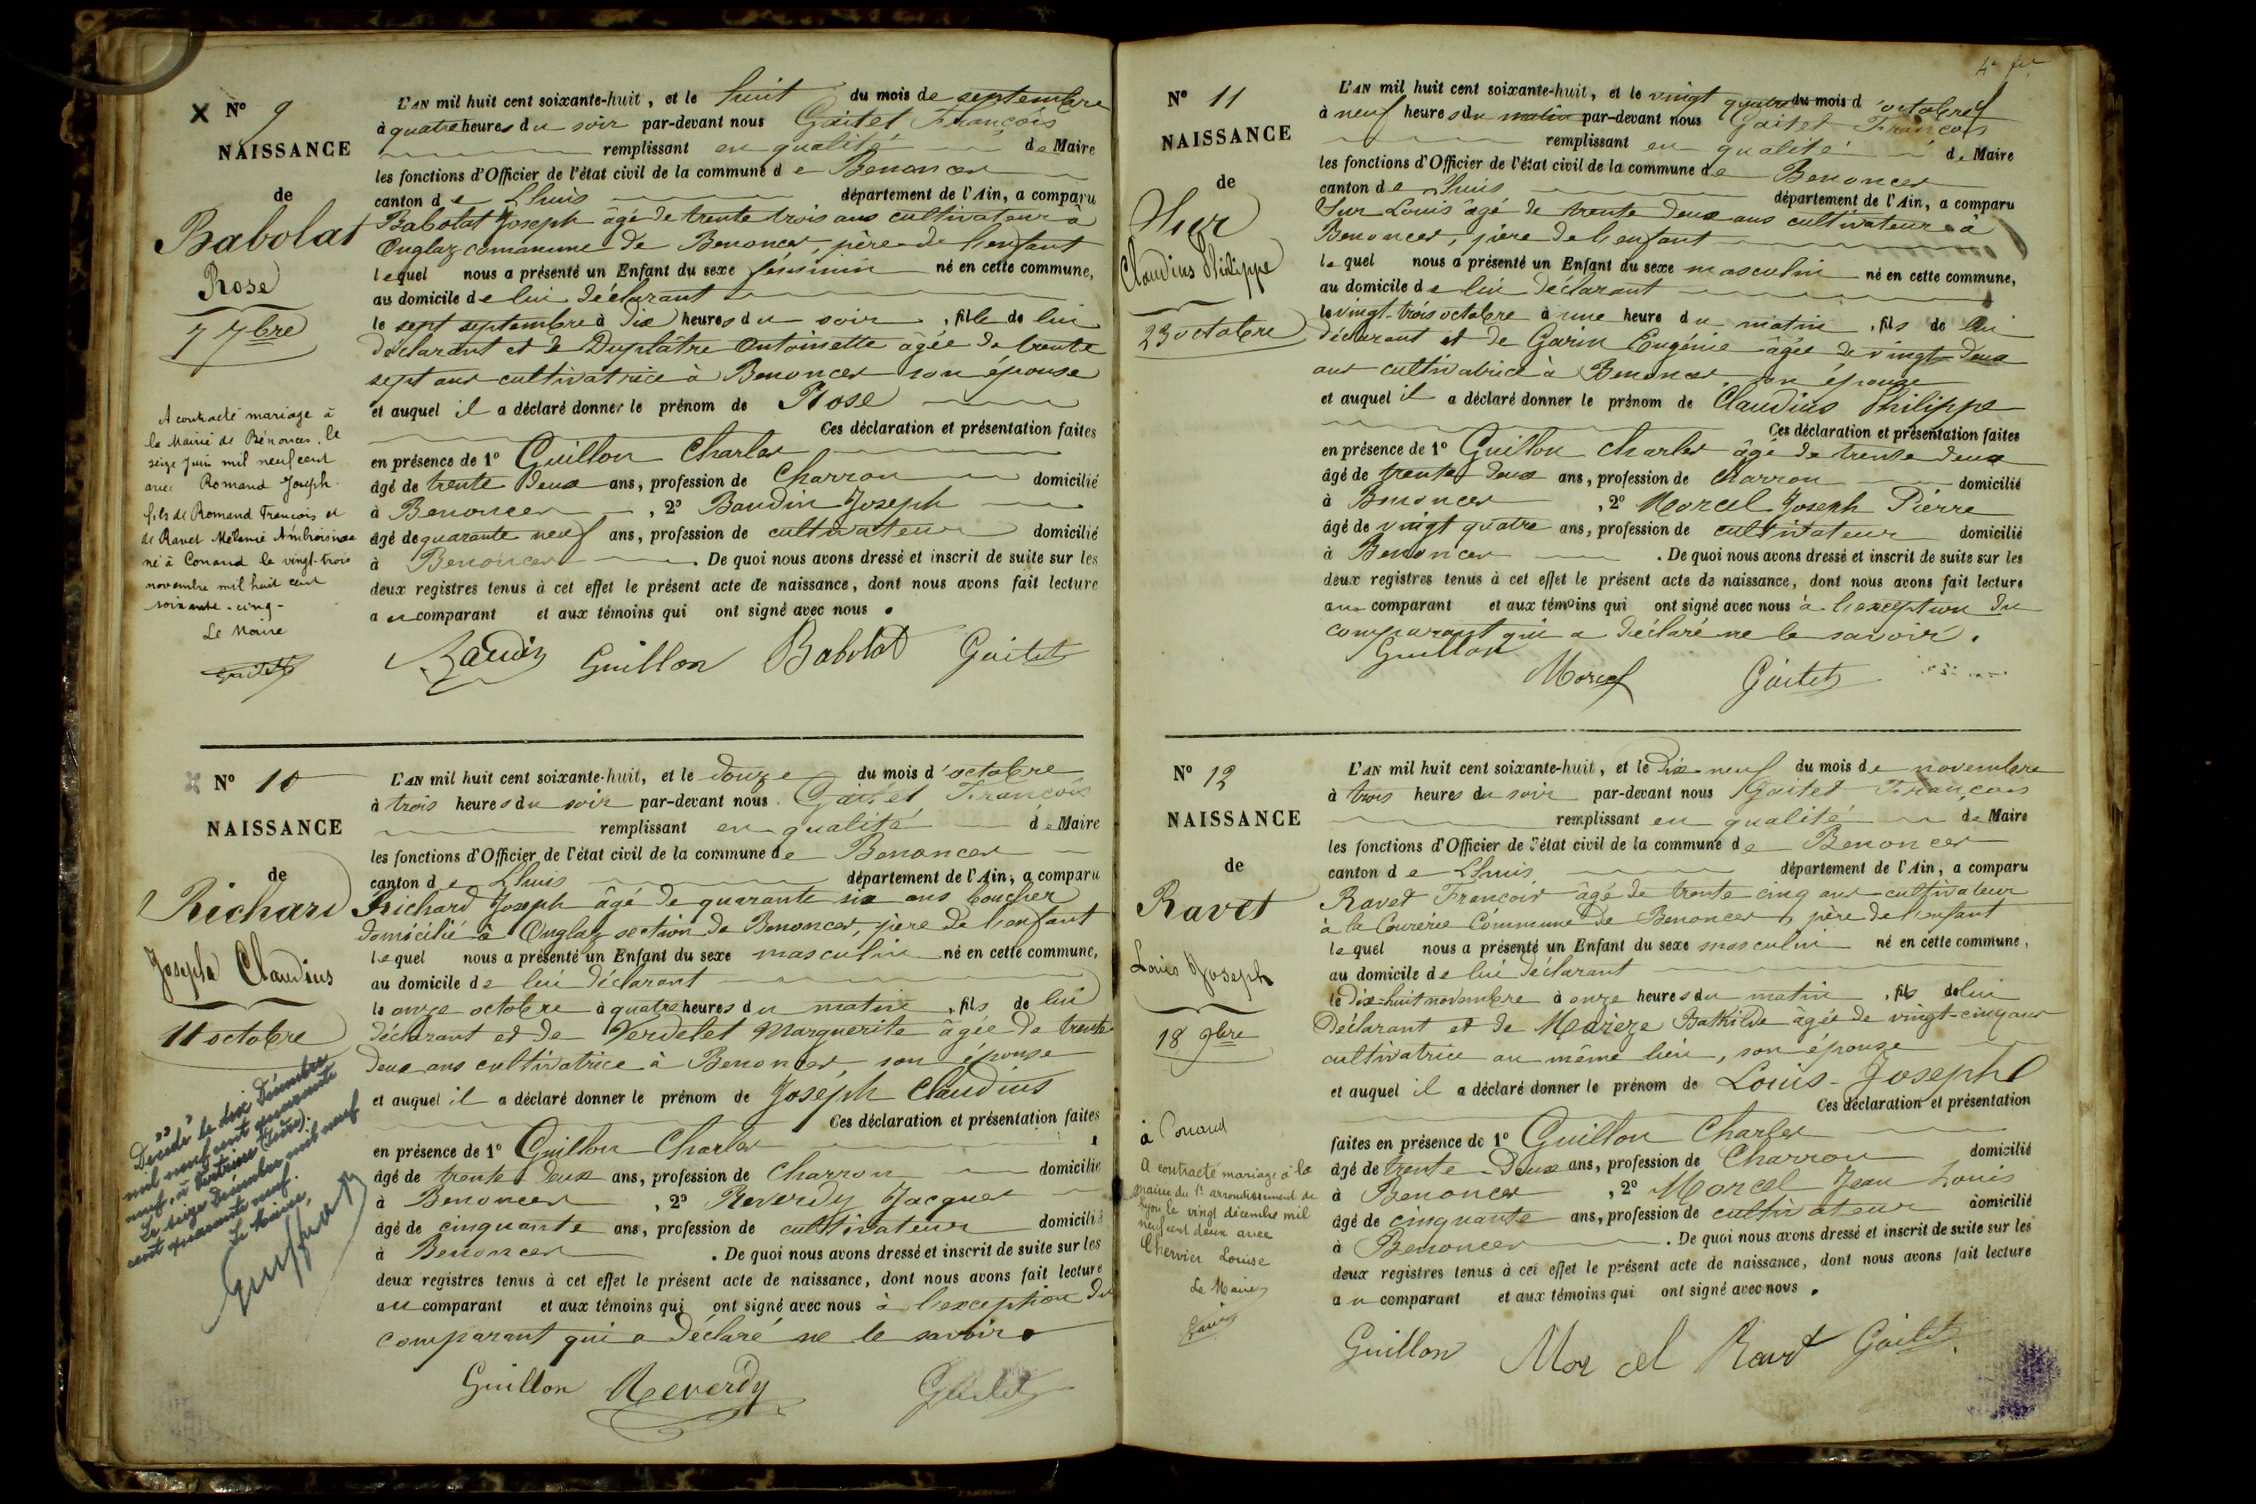 N° 9
NAISSANCE
de
Babolat
Rose
7 7bre
A contracté mariage à
la Mairie de Bénonces, le
seize Juin mil neuf cent
avec Romand Joseph
fils de Romand François et
de Ravet Mélanie Ambroisine
né à Conand le vingt-trois
novembre mil huit cent
soixante-cinq-
Le Maire
L'AN mil huit cent soixante-huit, et le huit du mois de septembre
à quatre heures du soir par-devant nous Gaitet François
remplissant en qualité de Maire
les fonctions d'Officier de l'état civil de la commune de Benonces
canton de Lhuis département de l'Ain, a comparu
Babolat Joseph âgé de trente trois ans cultivateur à
Onglaz commune de Benonces, père de l'enfant
lequel nous a présenté un Enfant du sexe féminin né en cette commune,
au domicile de lui déclarant
le sept septembre à dix heures du soir, fille de lui
déclarant et de Duplâtre Antoinette âgée de trente
sept ans cultivatrice à Benonces son épouse
et auquel il a déclaré donner le prénom de Rose
Ces déclaration et présentation faites
en présence de 1° Guillon Charles
âgé de trente deux ans, profession de Charron domicilié
à Benonces, 2° Baudin Joseph
âgé de quarante neuf ans, profession de cultivateur domicilié
à Benonces. De quoi nous avons dressé et inscrit de suite sur les
deux registres tenus à cet effet le présent acte de naissance, dont nous avons fait lecture
au comparant et aux témoins qui ont signé avec nous.
Baudin Guillon Babolat Gaitet
N° 10
NAISSANCE
de
Richard
Joseph Claudius
11 octobre
Décédé le dix Décembre
mil neuf cent quarante
neuf, à
Le seize Décembre mil neuf
cent quarante neuf.
Le Maire,
L'AN mil huit cent soixante-huit, et le douze du mois d'octobre
à trois heures du soir par-devant nous Gaitet François
remplissant en qualité de Maire
les fonctions d'Officier de l'état civil de la commune de Benonces
canton de Lhuis département de l'Ain, a comparu
Richard Joseph âgé de quarante six ans boucher
domicilié à Onglaz section de Benonces, père de l'enfant
lequel nous a présenté un Enfant du sexe masculin né en cette commune,
au domicile de lui déclarant
le onze octobre à quatre heures du matin, fils de lui
déclarant et de Verdelet Marguerite âgée de trente
deux ans cultivatrice à Benonces son épouse
et auquel il a déclaré donner le prénom de Joseph Claudius
Ces déclaration et présentation faites
en présence de 1° Guillon Charles
âgé de trente deux ans, profession de Charron domicilié
à Benonces, 2° Reverdy Jacques
âgé de cinquante ans, profession de cultivateur domicilié
à Benonces. De quoi nous avons dressé et inscrit de suite sur les
deux registres tenus à cet effet le présent acte de naissance, dont nous avons fait lecture
au comparant et aux témoins qui ont signé avec nous à l'exception du
comparant qui a déclaré ne le savoir.
Guillon Reverdy Gaitet
N° 11
NAISSANCE
de
Sur
Claudius Philippe
23 octobre
L'AN mil huit cent soixante-huit, et le vingt quatre du mois d'octobre
à neuf heures du matin par-devant nous Gaitet François
remplissant en qualité de Maire
les fonctions d'Officier de l'état civil de la commune de Benonces
canton de Lhuis département de l'Ain, a comparu
Sur Louis âgé de trente deux ans cultivateur à
Benonces, père de l'enfant
lequel nous a présenté un Enfant du sexe masculin né en cette commune,
au domicile de lui déclarant
le vingt-trois octobre à une heure du matin, fils de lui
déclarant et de Garin Eugénie âgée de vingt-deux
ans cultivatrice à Benonces, son épouse
et auquel il a déclaré donner le prénom de Claudius Philippe
Ces déclaration et présentation faites
en présence de 1° Guillon Charles âgé de trente deux
âgé de trente deux ans, profession de charron domicilié
à Benonces, 2° Morcel Joseph Pierre
âgé de vingt quatre ans, profession de cultivateur domicilié
à Benonces. De quoi nous avons dressé et inscrit de suite sur les
deux registres tenus à cet effet le présent acte de naissance, dont nous avons fait lecture
au comparant et aux témoins qui ont signé avec nous à l'exception du
comparant qui a déclaré ne le savoir.
Guillon
Morcel Gaitet
N° 12
NAISSANCE
de
Ravet
Louis Joseph
18 9bre
à Conand
A contracté mariage à la
mairie du 1er arrondissement de
Lyon le vingt décembre mil
neuf cent deux avec
Chervier Louise
Le Maire
L'AN mil huit cent soixante-huit, et le dix neuf du mois de novembre
à trois heures du soir par-devant nous Gaitet François
remplissant en qualité de Maire
les fonctions d'Officier de l'état civil de la commune de Benonces
canton de Lhuis département de l'Ain, a comparu
Ravet François âgé de trente cinq ans cultivateur
à la Courérie Commune de Benonces, père de l'enfant
lequel nous a présenté un Enfant du sexe masculin né en cette commune,
au domicile de lui déclarant
le dix-huit novembre à onze heures du matin, fils de lui
Déclarant et de Mazieze Bathilde âgée de vingt-cinq ans
cultivatrice au même lieu, son épouse
et auquel il a déclaré donner le prénom de Louis-Joseph
Ces déclaration et présentation
faites en présence de 1° Guillon Charles
âgé de trente-deux ans, profession de Charron domicilié
à Benonces, 2° Morcel Jean Louis
âgé de cinquante ans, profession de cultivateur domicilié
à Benonces. De quoi nous avons dressé et inscrit de suite sur les
deux registres tenus à cet effet le présent acte de naissance, dont nous avons fait lecture
au comparant et aux témoins qui ont signé avec nous.
Guillon Morcel Ravet Gaitet